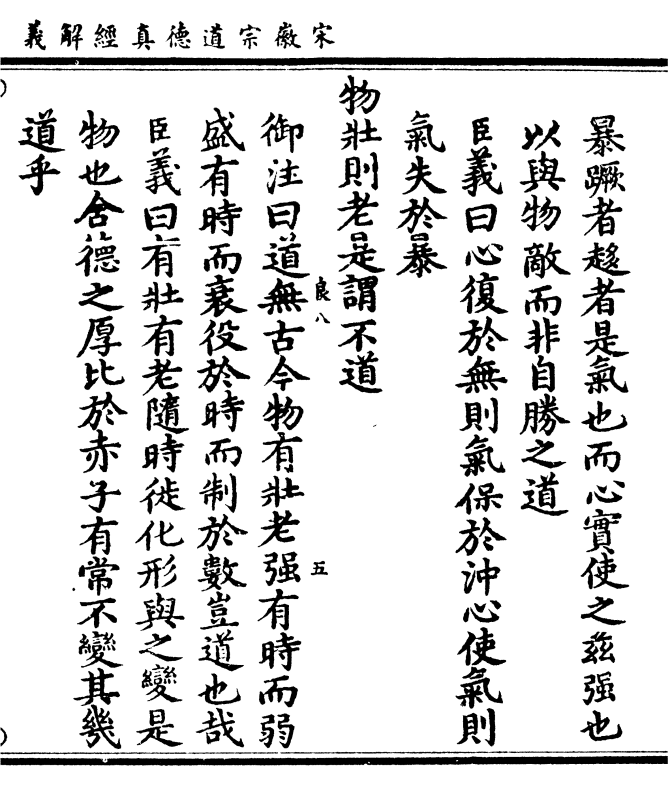 宋徽宗道德真經解義
暴蹶者趍者是氣也而心實使之兹强也
以與物敵而非自勝之道
臣義曰心復於無則氣保於沖心使氣則
氣失於暴
物壯則老是謂不道
良八
五
御注曰道無古今物有壯老强有時而弱
盛有時而衰役於時而制於數豈道也哉
臣義曰有壯有老隨時徙化形與之變是
物也含德之厚比於赤子有常不變其幾
道乎